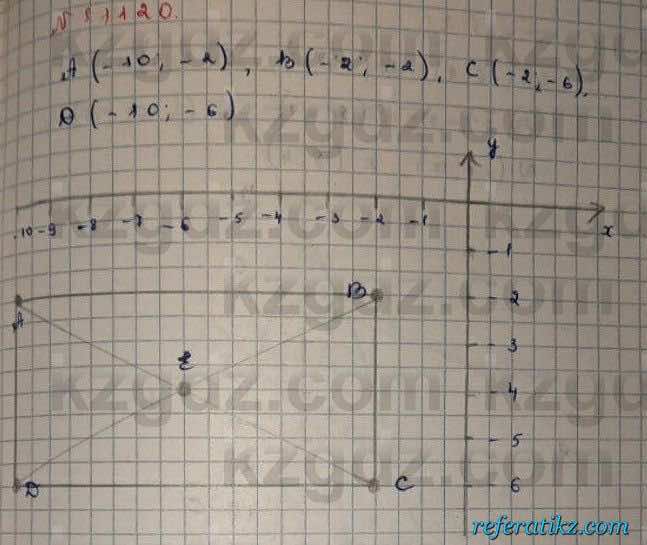 № 1120.
A (-10; -2), B (-2; -2), C (-2; -6),
D (-10; -6)
y
-10 -9 -8 -7 -6 -5 -4 -3 -2 -1
x
-1
B
-2
A
-3
E
-4
-5
D
C
-6
kzgdz.com
referatikz.com